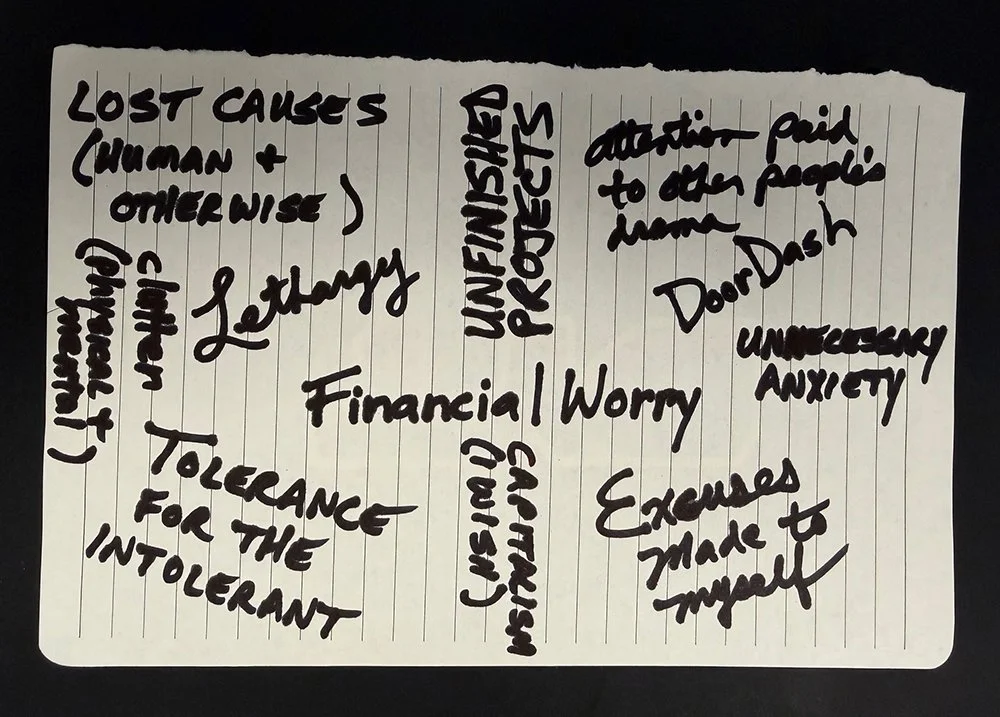 LOST CAUSES
(HUMAN +
OTHERWISE)
UNFINISHED
PROJECTS
attention paid
to other people's
drama
DoorDash
clutter
(physical +
mental)
Lethargy
UNNECESSARY
ANXIETY
Financial Worry
TOLERANCE
FOR THE
INTOLERANT
CAPITALISM
(I WISH)
Excuses
made to
myself